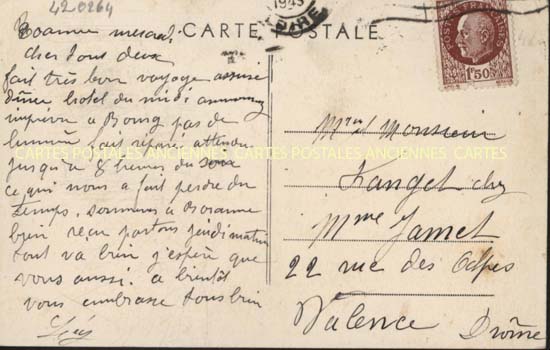 420264
CARTE POSTALE
1943
1F50
Roanne mercredi
chers tous deux
fait très bon voyage assuré
dîner hotel du midi
à Bourg pas de
lumière fait réparer attendu
jusqu'à 8 heures du soir
ce qui nous a fait perdre du
temps. sommes à Roanne
bien reçu partons jeudi matin
tout va bien j'espère que
vous aussi. a bientôt
vous embrasse tous bien
Mme/Monsieur
chez
Mme Jamet
22 rue des Alpes
Valence Drôme
CARTES POSTALES ANCIENNES CARTES POSTALES ANCIENNES CARTES